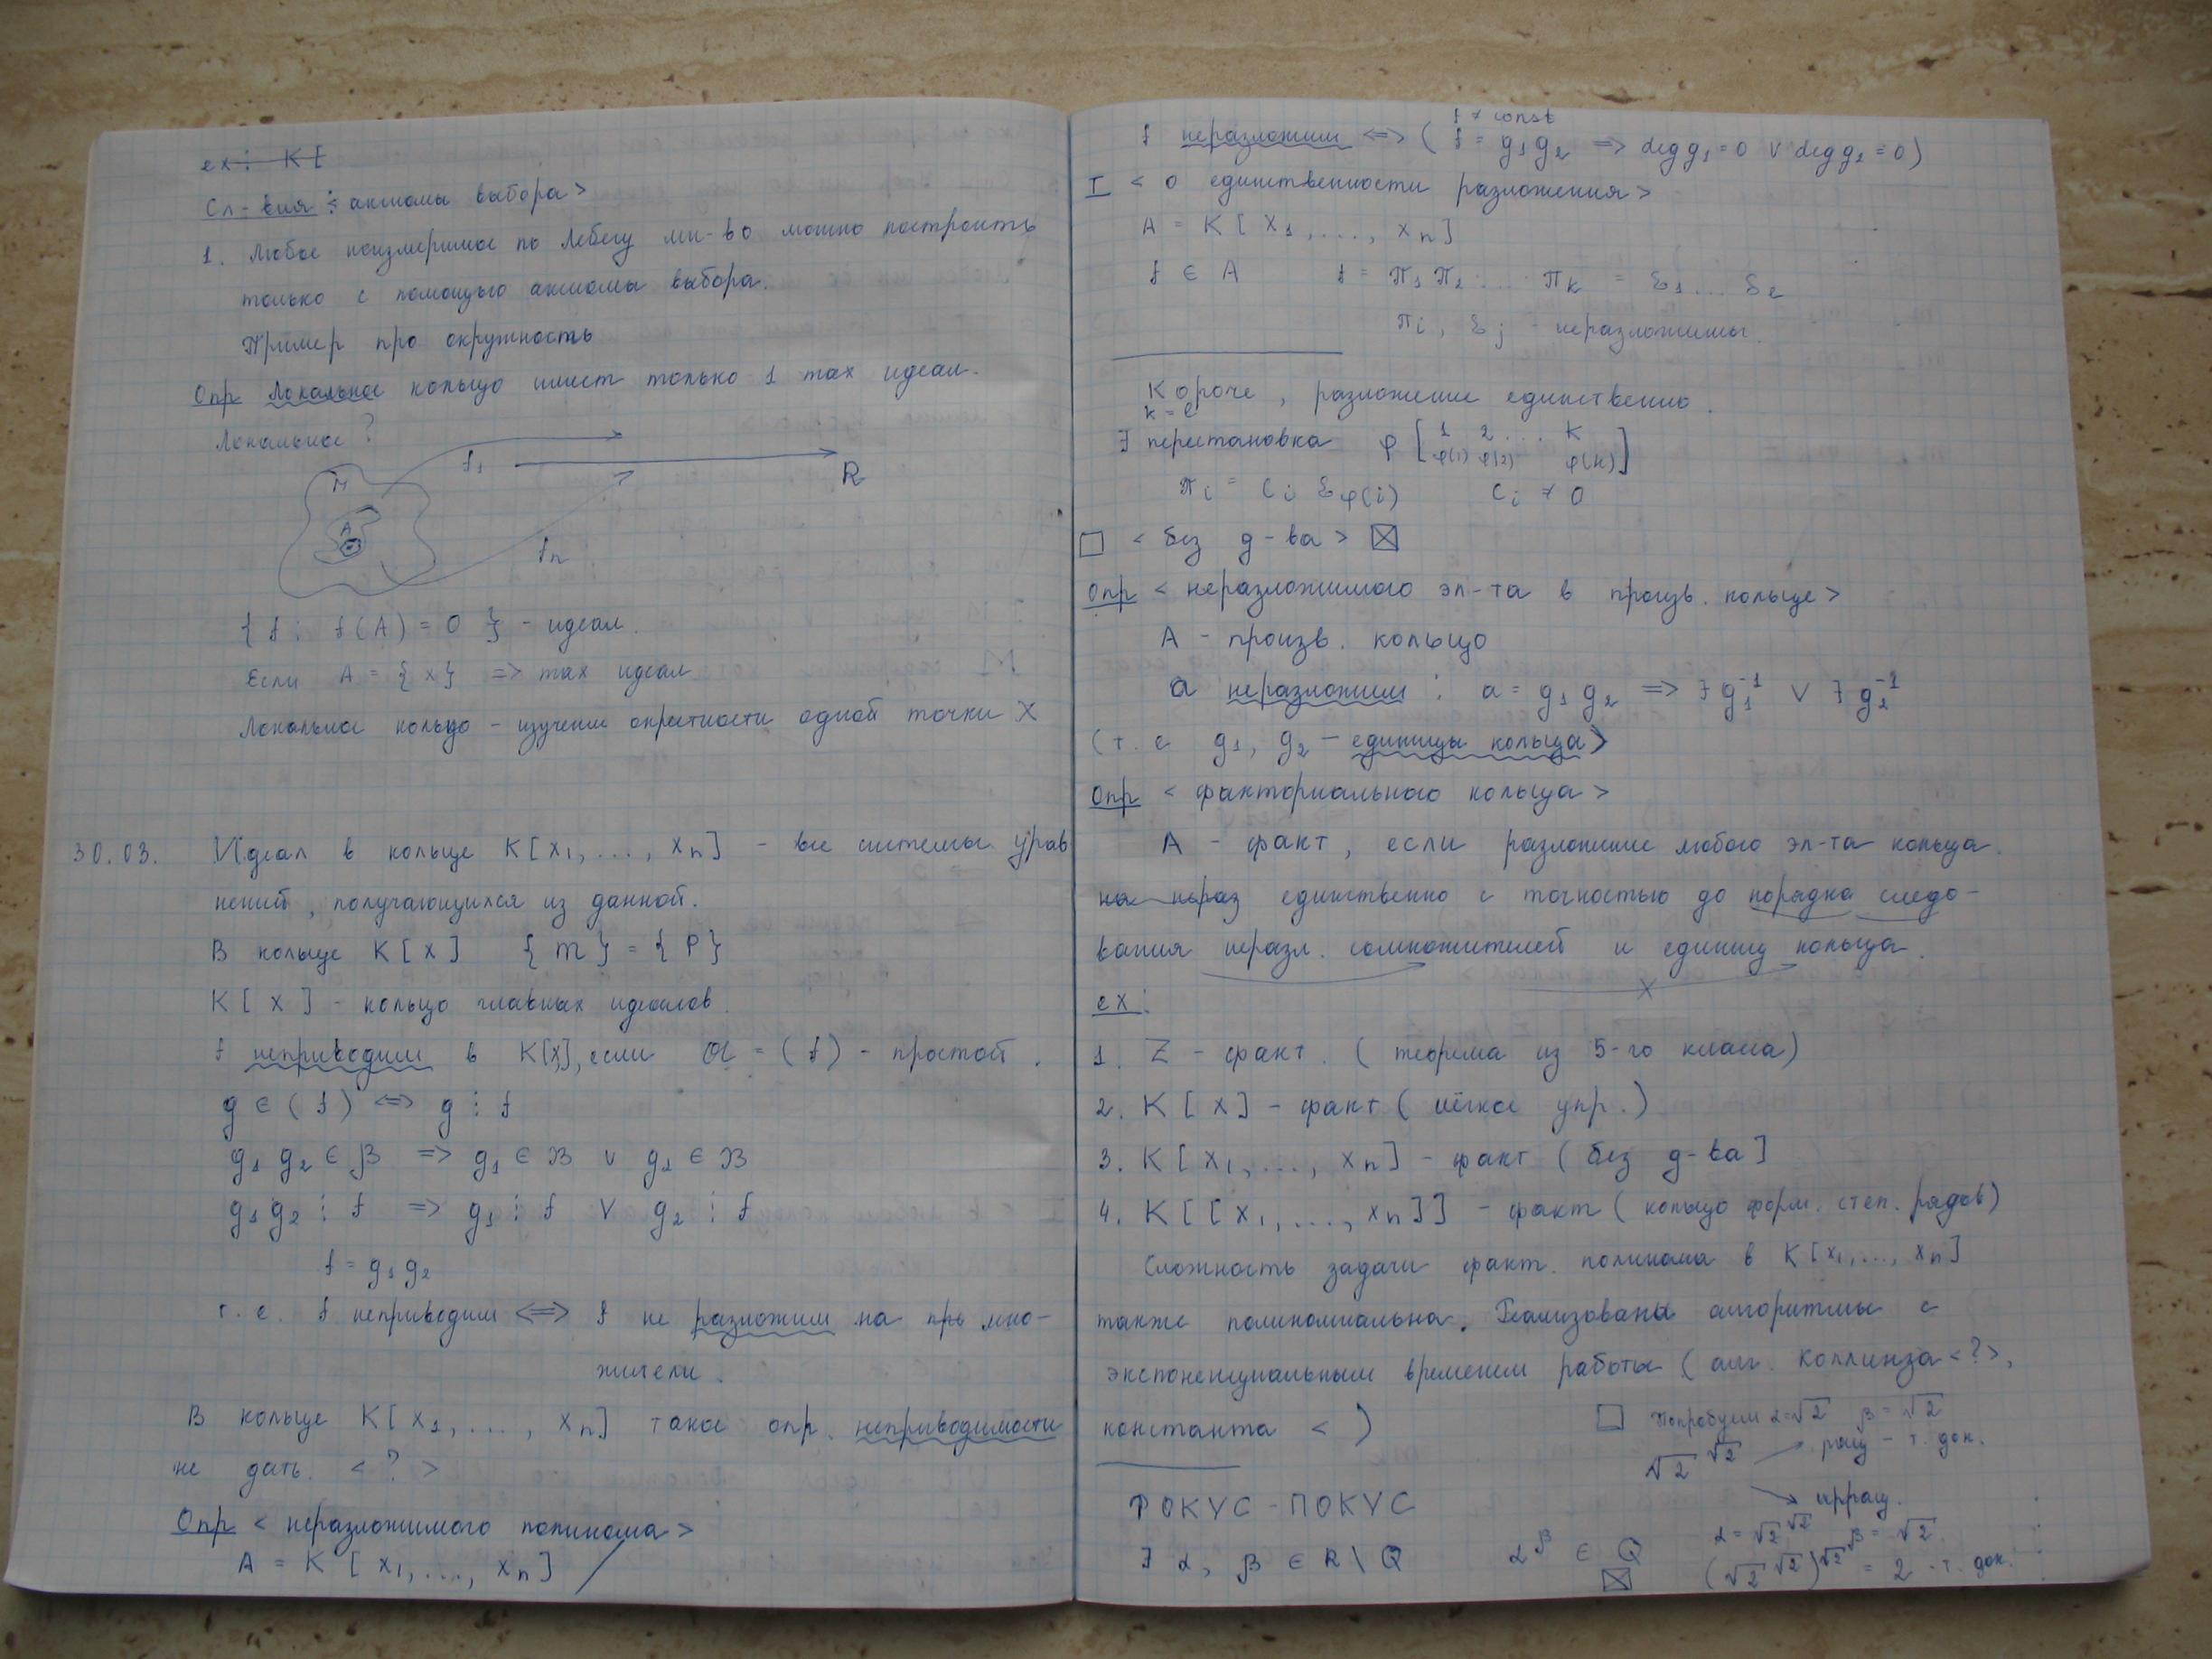 ex: K[
Сл-вия < аксиомы выбора >
1. Любое неизмеримое по Лебегу мн-во можно построить
только с помощью аксиомы выбора.
Пример про окружность
Опр Локальное кольцо имеет только 1 max идеал.
Локальное?
f₁
R
M
A
fₙ
{ f : f(A) = 0 } - идеал.
Если A = {x} => max идеал
Локальное кольцо - изучение окрестности одной точки X
30.03. Идеал в кольце K[x₁, ..., xₙ] - все системы урав
нений, получающиеся из данной.
В кольце K[x] {m} = {p}
K[x] - кольцо главных идеалов.
f неприводим в K[x], если 𝔞 = (f) - простой.
g ∈ (f) <=> g ⋮ f
g₁ g₂ ∈ β => g₁ ∈ β ∨ g₂ ∈ β
g₁ g₂ ⋮ f => g₁ ⋮ f ∨ g₂ ⋮ f
f = g₁ g₂
т.е. f неприводим <=> f не разложим на мно-
жители.
В кольце K[x₁, ..., xₙ] такое опр. неприводимости
не дать. <?>
Опр < неразложимого полинома >
A = K[x₁, ..., xₙ]
f ≠ const
f неразложим <=> ( f = g₁ g₂ => deg g₁ = 0 ∨ deg g₂ = 0)
T < о единственности разложения >
A = K[x₁, ..., xₙ]
f ∈ A f = π₁ π₂ ... πₖ = ξ₁ ... ξₑ
πᵢ, ξⱼ - неразложимы.
Короче, разложение единственно.
k = e
∃ перестановка φ [1 2 ... k
φ(1) φ(2) φ(k)]
πᵢ = cᵢ ξφ(i) cᵢ ≠ 0
□ < без д-ва > ⊠
Опр < неразложимого эл-та в произв. кольце >
A - произв. кольцо
a неразложим : a = g₁ g₂ => ∃ g₁⁻¹ ∨ ∃ g₂⁻¹
(т.е g₁, g₂ - единицы кольца)
Опр < факториального кольца >
A - факт, если разложение любого эл-та кольца
на нераз единственно с точностью до порядка следо-
вания неразл. сомножителей и единиц кольца.
ex:
1. Z - факт. (теорема из 5-го класса)
2. K[x] - факт (лёгкое упр.)
3. K[x₁, ..., xₙ] - факт (без д-ва]
4. K[[x₁, ..., xₙ]] - факт (кольцо форм. степ. рядов)
Сложность задачи факт. полинома в K[x₁, ..., xₙ]
также полиномиальна. Реализованы алгоритмы с
экспоненциальным временем работы (алг. Коллинза <?>,
константа < )
ФОКУС-ПОКУС
∃ α, β ∈ R \ Q α^β ∈ Q
⊠
□ Попробуем α = √2 β = √2
√2^√2 рац - т. док.
иррац.
α = √2^√2 β = √2
(√2^√2)^√2 = 2 - т. док.